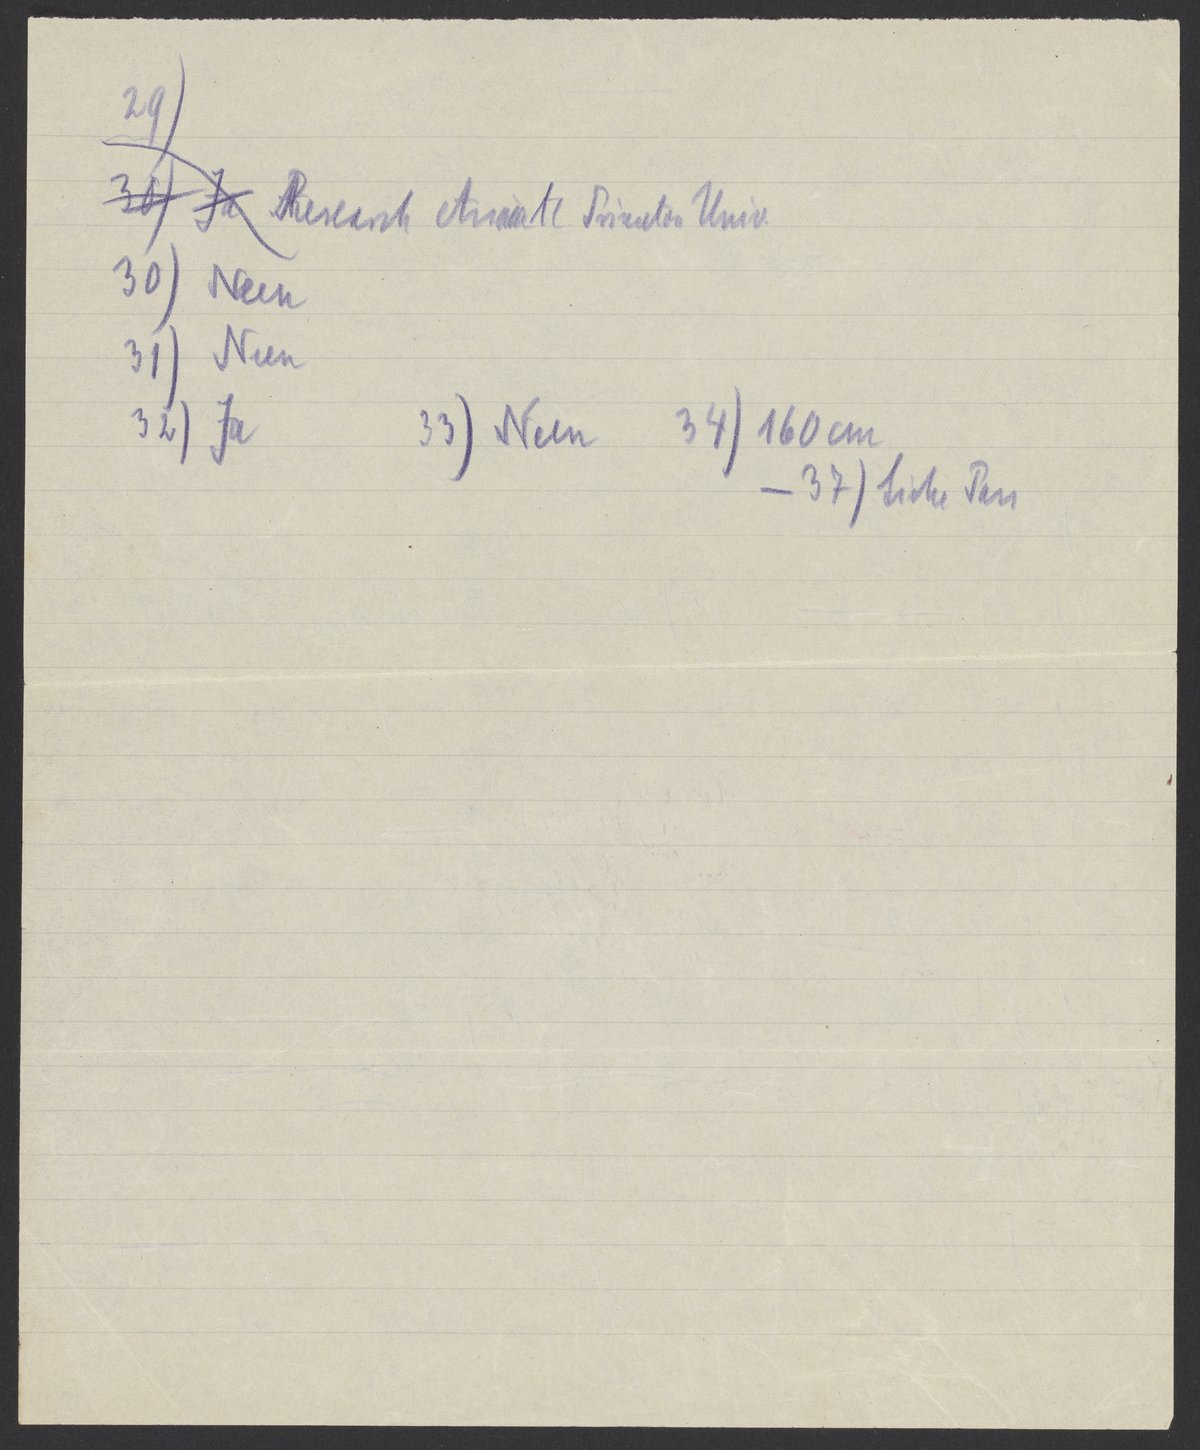 29)
30) Ja Research Associate Princeton Univ.
30) Nein
31) Nein
32) Ja 33) Nein 34) 160 cm
– 37) Siehe Pass